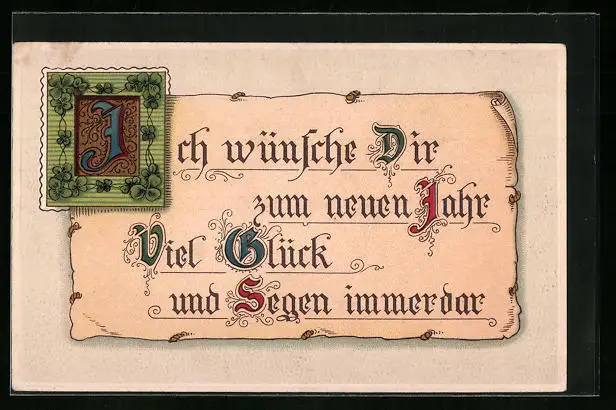 Ich wünsche Dir
zum neuen Jahr
Viel Glück
und Segen immerdar